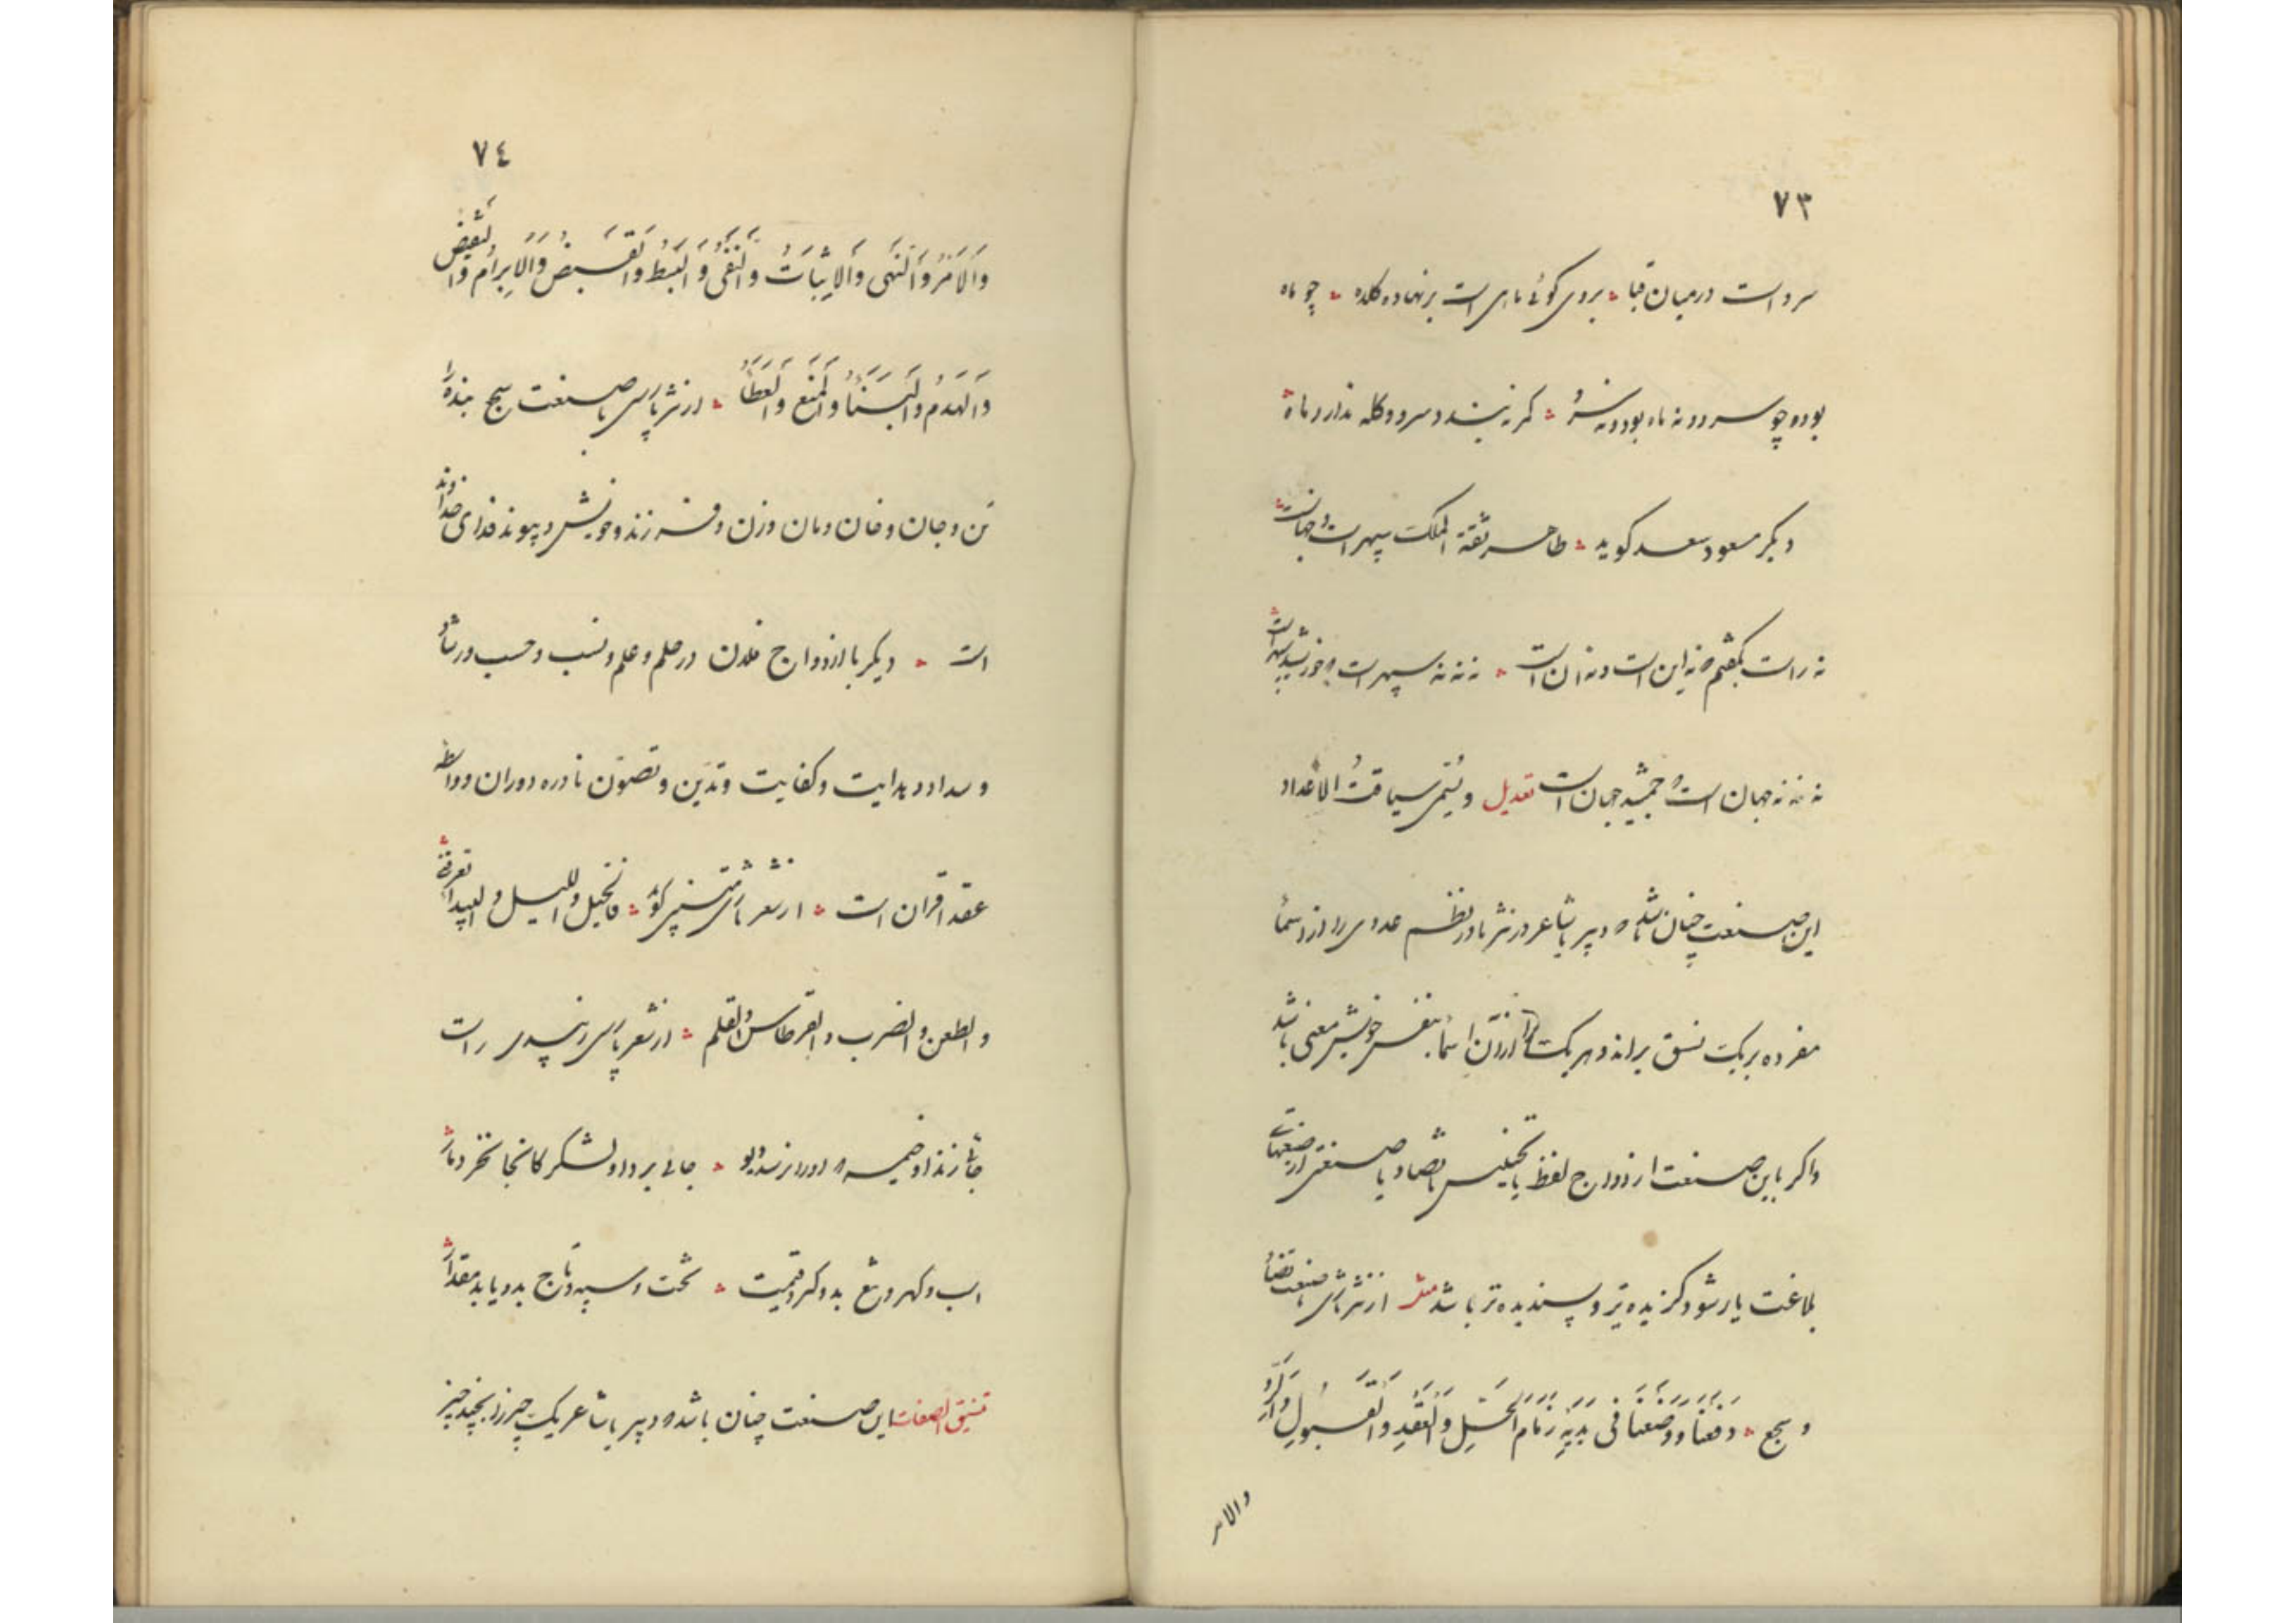 ٧٣
سرو است در میان قبا بروی کوئی ماهی است بر نهاده کله چو ماه
بود و چو سرو و نه ماه بود و نه سرو کمر نبندد سرو و کله ندارد ماه
دیکر مسعود سعد کوید طاهر ثقة الملک سپهر است و جهان است
نه راست نکفتم که نه این است و نه آن است نه نه نه سپهر است که خورشید سپهر است
نه نه نه جهان است که جمشید جهان است تعدیل ویسمی سیاقت الاعداد
این صنعت چنان باشد که دبیر یا شاعر در نثر یا در نظم عددی را از اسماء
مفرده بر یک نسق براند و هر یک را از آن اسماء بنفس خویش معنی باشد
واکر باین صنعت ازدواج لفظ یا تجنیس یا تضاد یا صنعتی از صنعتهای
بلاغت یار شود کزیده تر و پسندیده تر باشد مثالش از نثر تازی با صنعت تضاد
و سجع دفعنا ووضعنا فی یدیه زمام الحل والعقد والقبول والرد
والامر
٧٤
والامر والنهی والاثبات والنفی والبسط والقبض والابرام والنقض
والهدم والبناء والمنع والعطاء از نثر پارسی با صنعت سجع بنده را
تن و جان و خان و مان و زن و فرزند و خویش و پیوند فدای خداوند
است دیکر با ازدواج فلان در حلم و علم و نسب و حسب و رشاد
و سداد و هدایت و کفایت و تدین و تصون نادره دوران و واسطه
عقد اقران است از شعر تازی متنبی کوید فالخیل واللیل والبیداء تعرفنی
والطعن والضرب والقرطاس والقلم از شعر پارسی رئیسی راست
جائی زند او خیمه که آنجا نرسد دیو جائی برد او لشکر کانجا نخزد مار
اسب و کهر و تیغ بدو کیرد قیمت تخت و سپه و تاج بدو یابد مقدار
تنسیق الصفات این صنعت چنان باشد که دبیر یا شاعر یک چیز را بچند چیز